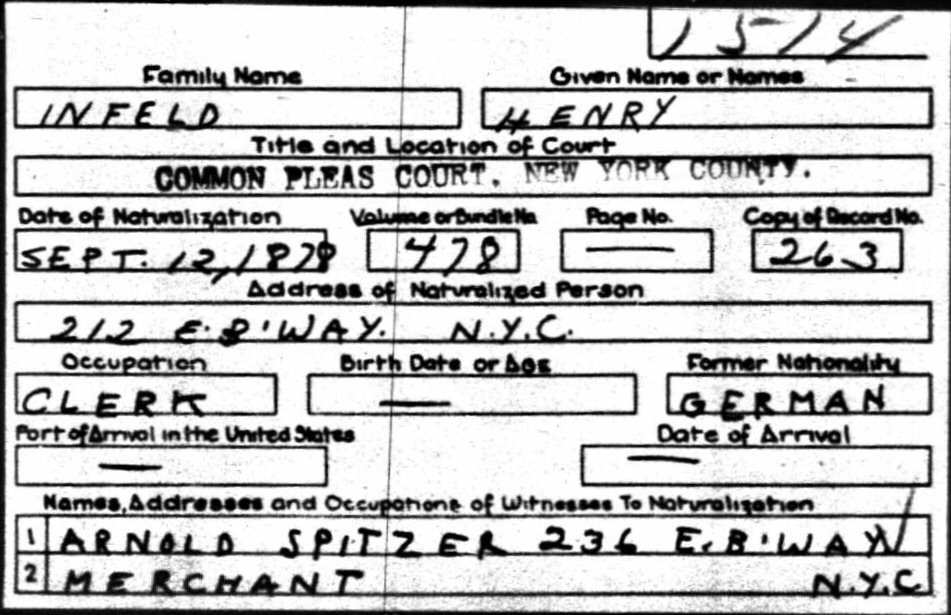 1514
Family Name Given Name or Names
INFELD HENRY
Title and Location of Court
COMMON PLEAS COURT, NEW YORK COUNTY.
Date of Naturalization Volume or Bundle No. Page No. Copy of Record No.
SEPT. 12, 1878 478 — 263
Address of Naturalized Person
212 E. B'WAY. N.Y.C.
Occupation Birth Date or Age Former Nationality
CLERK — GERMAN
Port of Arrival in the United States Date of Arrival
— —
Names, Addresses and Occupations of Witnesses To Naturalization
1 ARNOLD SPITZER 236 E. B'WAY
2 MERCHANT N.Y.C